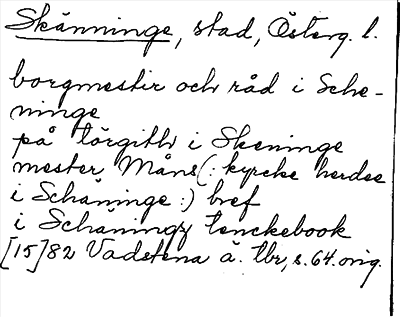 Skänninge, stad, Österg. l.
borgmestir och råd i Sche-
ninge
på törgith i Skeninge
mester Måns (: kyrcke herdee
i Schäninge :) bref
i Schäningz tenckebook
[15]82 Vadstena ä. tbr, s. 64. orig.